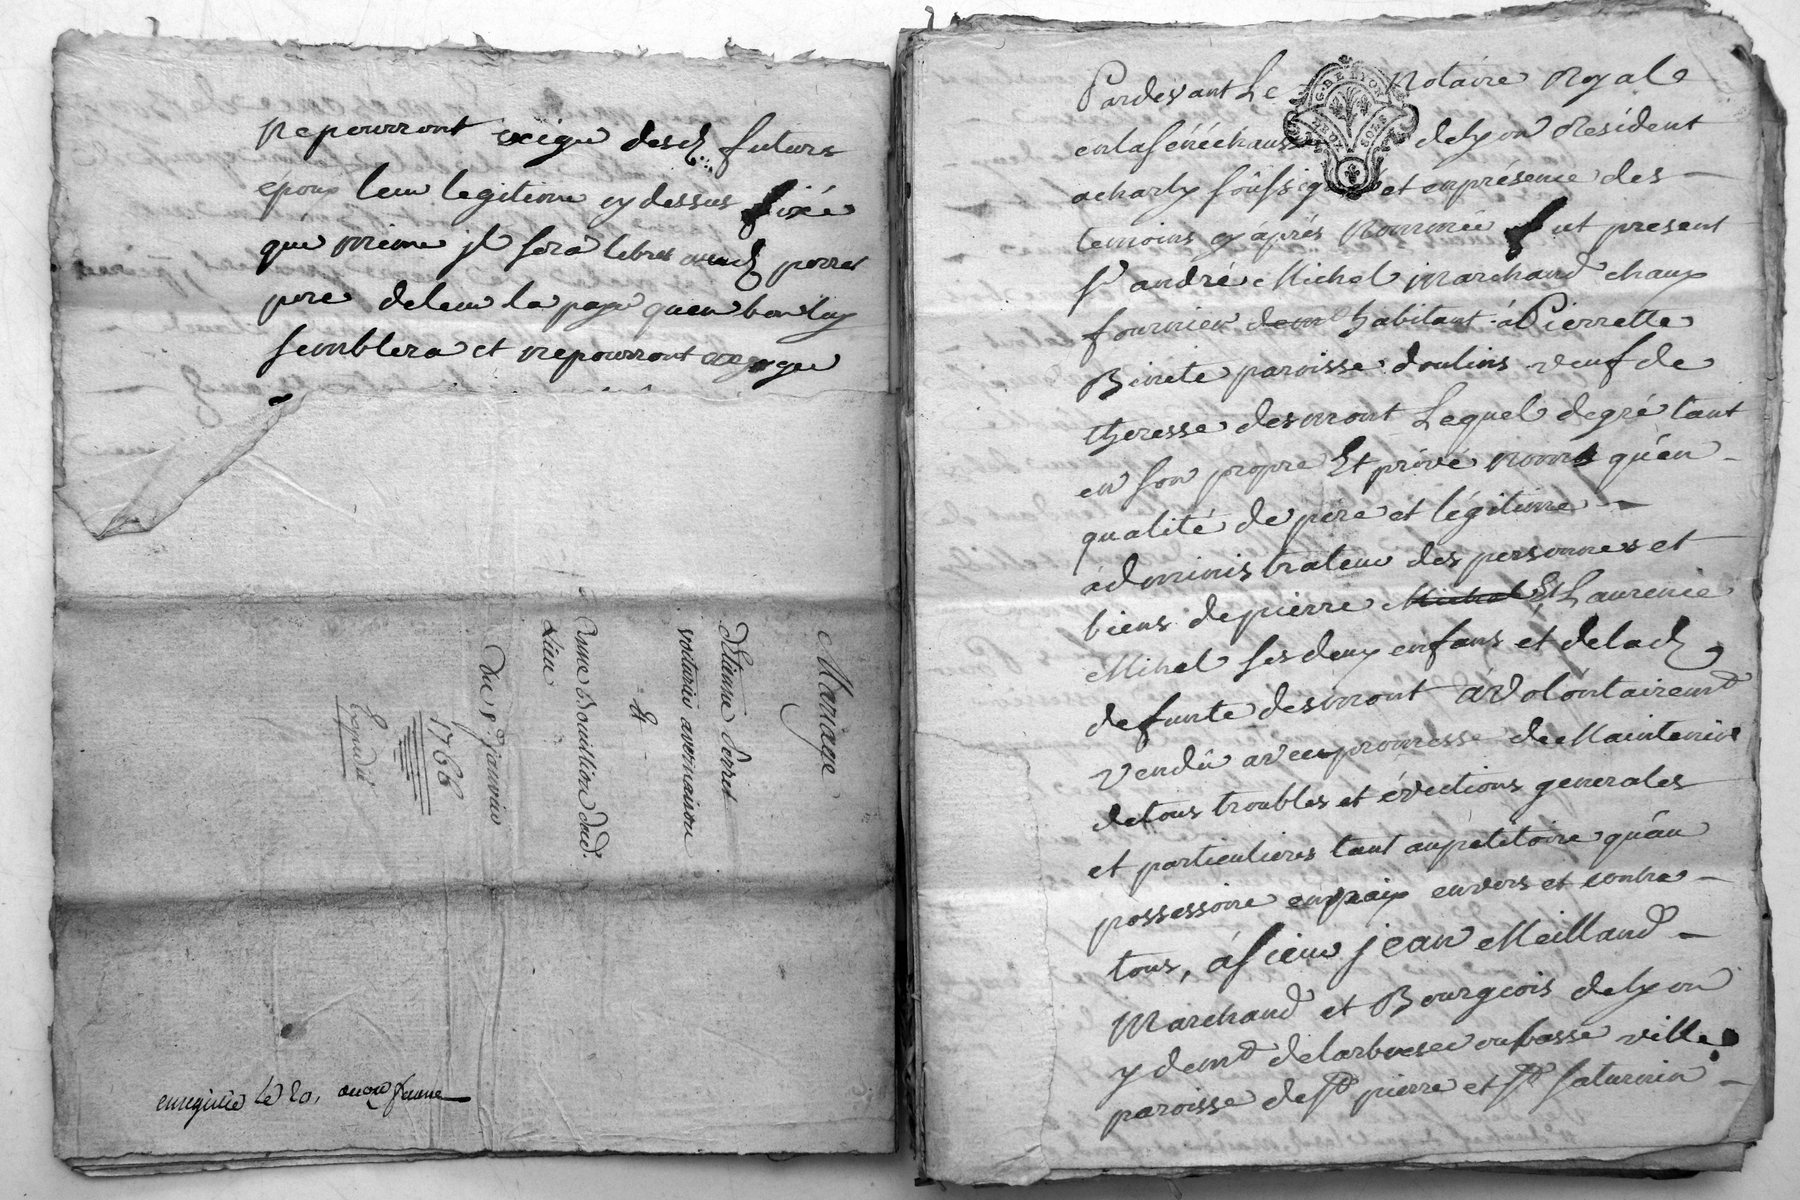 Nepourront exiger desd. futurs
époux leur legitime cy dessus fixée
que même jl sera lebres auxd. porrer
pere deleur la paye quen bon luy
semblera et nepourront exiger
Mariage
D'Etienne Perret
voiturier avernaison
Et
Anne Bouillion dud.
Lieu
Du 8e Janvier
1766
Expedié
enregistré le 20,
Pardevant Le Notaire Royal
enlasénéchaussée delyon Résident
acharly soûssigné et enprésence des
temoins cy aprés Nommés fut present
sr. andré Michel Marchand chaux
fournier demt. habitant á Pierrette
Benite paroisse doulins veuf de
theresse desmont Lequel degré tant
en son propre Et privé nom qu'en
qualité de pere et légitime
administrateur des personnes et
biens depierre Michel Et Laurence
Michel ses deux enfans et delad.
defunte desmont a Volontairemt.
vendû avec promesse de Maintenir
detous troubles et évictions generales
et particulieres tant aupetitoire qu'au
possessoire enpaix envers et contre
tous, ásieur jean Meilland
Marchand et Bourgeois delyon
y demt. delarbresec rue basse ville
paroisse de st. pierre et st. saturnin
G. DE LYON
DEUX SOLS